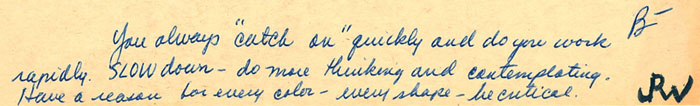 You always "catch on" quickly and do you work B-
rapidly. SLOW down - do more thinking and contemplating.
Have a reason for every color - every shape - be critical.